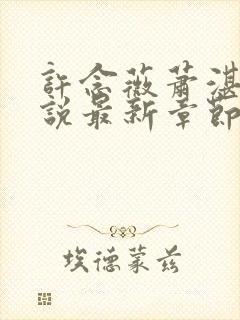 許念薇蕭湛
說最新章節
埃德蒙兹